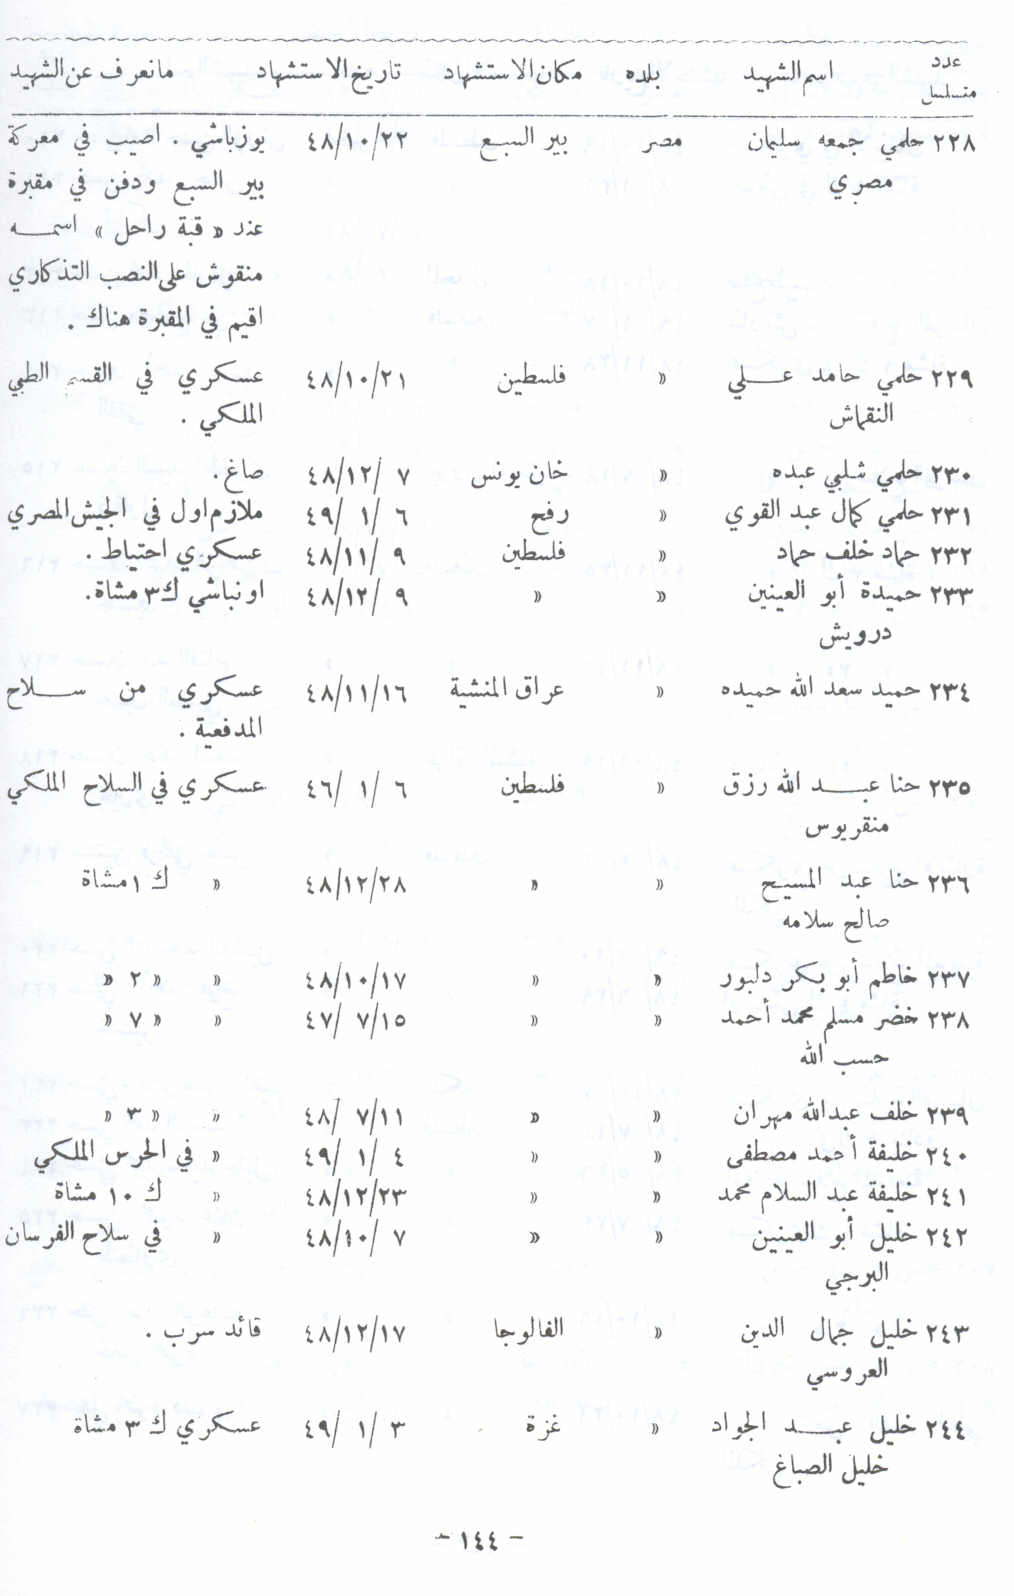 عدد متسلسل اسم الشهيد بلده مكان الاستشهاد تاريخ الاستشهاد ما نعرف عن الشهيد
٢٢٨ حلمي جمعه سليمان مصر بير السبع ٤٨/١٠/٢٢ يوزباشي . اصيب في معركة
مصري بير السبع ودفن في مقبرة
عند « قبة راحل » اسمـــه
منقوش على النصب التذكاري
اقيم في المقبرة هناك .
٢٢٩ حلمي حامد عـــلي » فلسطين ٤٨/١٠/٢١ عسكري في القسم الطبي
النقماش الملكي .
٢٣٠ حلمي شلبي عبده » خان يونس ٤٨/١٢/ ٧ صاغ .
٢٣١ حلمي كمال عبد القوي » رفح ٤٩/ ١/ ٦ ملازم اول في الجيش المصري
٢٣٢ حماد خلف حماد » فلسطين ٤٨/١١/ ٩ عسكري احتياط .
٢٣٣ حميدة أبو العينين » » ٤٨/١٢/ ٩ اونباشي ك٣ مشاة.
درويش
٢٣٤ حميد سعد الله حميده » عراق المنشية ٤٨/١١/١٦ عسكري من ســـلاح
المدفعية .
٢٣٥ حنا عبـــد الله رزق » فلسطين ٤٦/ ١/ ٦ عسكري في السلاح الملكي
منقريوس
٢٣٦ حنا عبد المسيح » » ٤٨/١٢/٢٨ » ك ١ مشاة
صالح سلامه
٢٣٧ خاطم أبو بكر دلبور » » ٤٨/١٠/١٧ » » ٢ »
٢٣٨ خضر مسلم محمد أحمد » » ٤٧/ ٧/١٥ » » ٧ »
حسب الله
٢٣٩ خلف عبدالله مهران » » ٤٨/ ٧/١١ » » ٣ »
٢٤٠ خليفة أحمد مصطفى » » ٤٩/ ١/ ٤ » في الحرس الملكي
٢٤١ خليفة عبد السلام محمد » » ٤٨/١٢/٢٣ » ك ١٠ مشاة
٢٤٢ خليل أبو العينين » » ٤٨/١٠/ ٧ » في سلاح الفرسان
البرجي
٢٤٣ خليل جمال الدين » الفالوجا ٤٨/١٢/١٧ قائد سرب .
العروسي
٢٤٤ خليل عبـــد الجواد » غزة ٤٩/ ١/ ٣ عسكري ك ٣ مشاة
خليل الصباغ
– ١٤٤ –